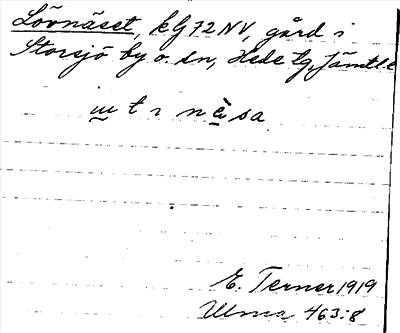 Lövnäset, kG72NV, gård i
Storsjö by o. sn, Hede tg, Jämtl. l
ɯ t ı n ǜ sa
E. Terner 1919
Ulma 463:8